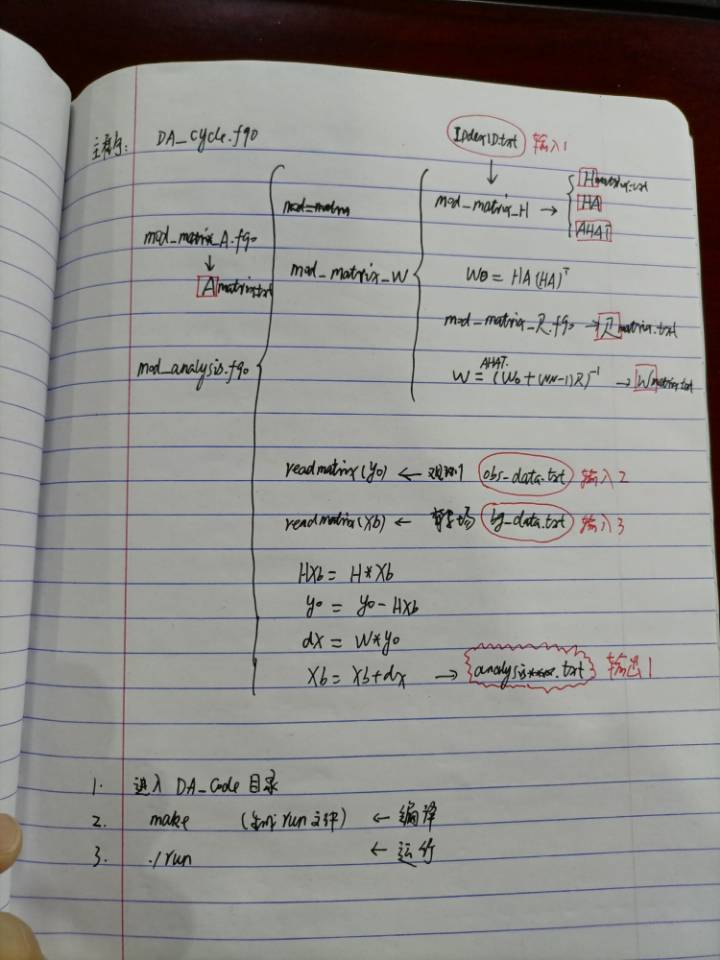 主程序: DA_cycle.f90
IndexID.txt 输入1
mod_matrix_H → Hmatrix.txt
HA
AHAT
mod_matrix_A.f90
Amatrix.txt
mod_matrix_W
W0 = HA(HA)^T
mod_matrix_R.f90 → Rmatrix.txt
mod_analysis.f90
W = AHAT·(W0+(N-1)R)^-1 → Wmatrix.txt
readmatrix(yo) ← 观测 obs_data.txt 输入2
readmatrix(Xb) ← 背景场 bg_data.txt 输入3
HXb = H*Xb
yo = yo-HXb
dX = W*yo
Xb = Xb+dx → analysis****.txt 输出1
1. 进入 DA_Code 目录
2. make (生成run文件) ← 编译
3. ./run ← 运行